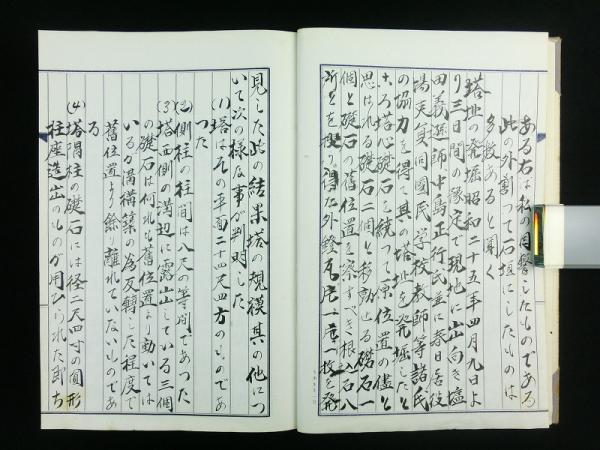 ある右は私の目撃したものである
此の外割つて石垣にしたものは
多数あると聞く
塔址の発掘昭和二十五年四月九日よ
り三日間の豫定で現地に出向き塩
田義孫師中島正行氏並に春日
湯天負同国民学校教師等諸氏
の協力を得て其の塔址を発掘したと
ころ塔心礎石を繞つて原位置の儘と
思はれる礎石二個と移動せる礎石一
個と礎石の舊位置を察すべき根入石八
所とを搜り得た外鐙瓦完一簞一枚を発
見した此の結果塔の規模其の他につ
いて次の様な事が判明した
(1)塔はその平面二十四尺四方のものであ
つた
(2)側柱の柱間は八尺等間であつた
(3)塔西側の溝辺に露出している三個
の礎石は何れも舊位置より動いては
いるが溝構築の為反轉した程度で
舊位置より餘り離れていないものであ
る
(4)塔隅柱の礎石には径二尺四寸の圓形
柱座造出のものが用ひられた即ち